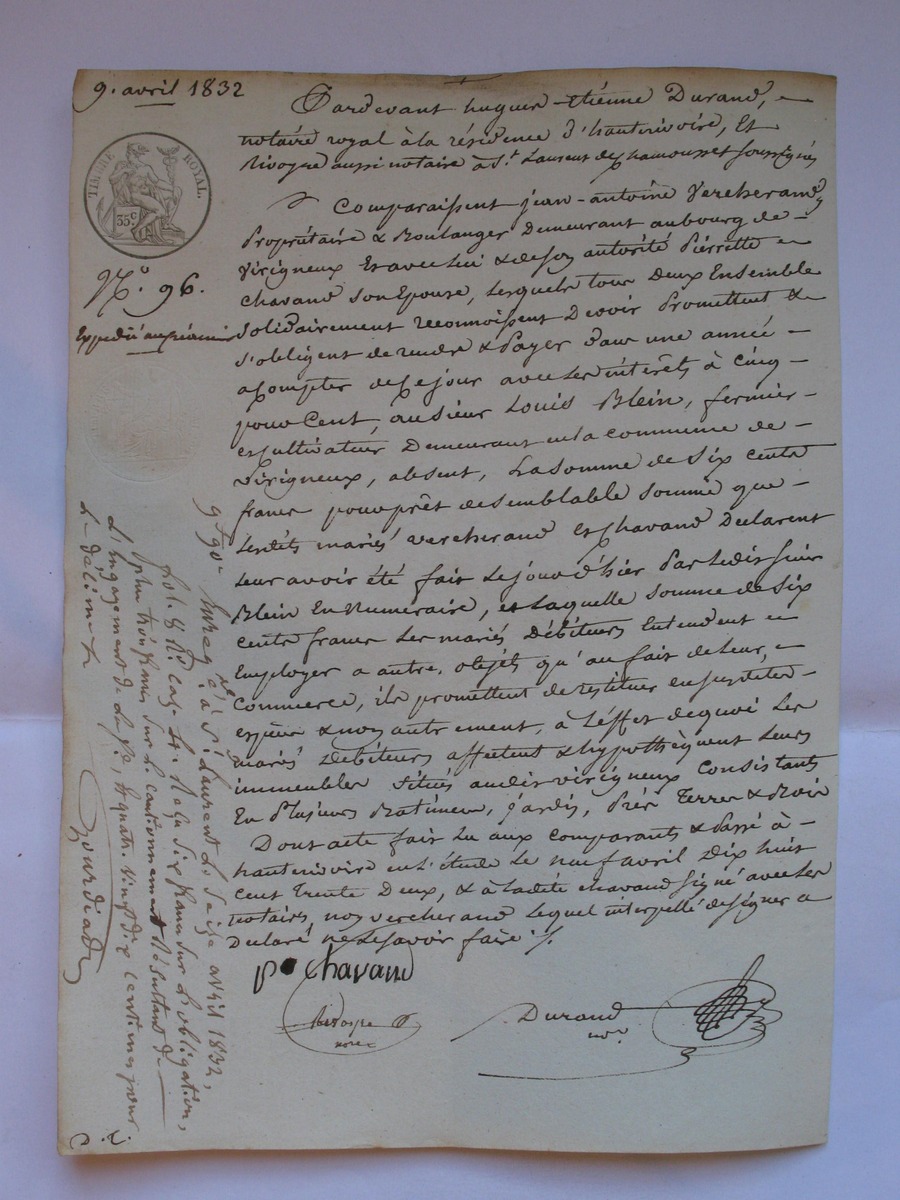 9. avril 1832
TIMBRE ROYAL.
35c
N.o 96.
Expédié au créancier
Pardevant hugues-étienne Durand,
notaire royal à la résidence d'hauterivoire, Et
aussi notaire à St. Laurent de chamousset soussignés
Comparaissent jean-antoine Vercherand,
Propriétaire & Boulanger Demeurant au bourg de
Virigneux Et avec lui & de son autorité Pierrette
Chavand son Epouse, lesquels tous deux Ensemble
Solidairement reconnoissent Devoir Promettent &
s'obligent de rendre & Payer dans une année
a Compter de ce jour avec les intérêts à Cinq
pour Cent, au sieur Louis Blein, fermier
et Cultivateur Demeurant en la commune de
Virigneux, absent, La Somme de Six cents
francs pour prêt de semblable somme que
Lesdits mariés Vercherand et Chavand Déclarent
Leur avoir été fait Le jour d'hier Par Ledit sieur
Blein En Numéraire, et Laquelle somme de Six
Cents francs Les mariés Débiteurs Entendent
Employer a autres objets qu'au fait de Leur
Commerce, ils promettent de restituer en
espèces & non autrement, à l'éffet de quoi Les
mariés Débiteurs affectent & hypothèquent Leurs
immeubles Situés audit virigneux Consistants
En Plusieurs Batiments, jardis, Prés Terres & Bois
Dont acte fait Lu aux comparants & Passé à
hauterivoire en L'étude Le neuf avril Dix huit
Cent Trente Deux, & à ladite chavand signé avec Les
notaires, non vercherand Lequel interpellé de signer a
Declaré ne Le savoir faire ./.
p chavand
Durand
nore
nore
Enreg.é à St. Laurent Le Seize avril 1832,
fol. 8 Ro. Case 4. Reçu Six francs sur L'obligation,
Plus trois francs sur Le cautionnement Résultant de
L'engagement de La fe, & quatre Vingt dix centimes pour
Le décime
Bourdiad